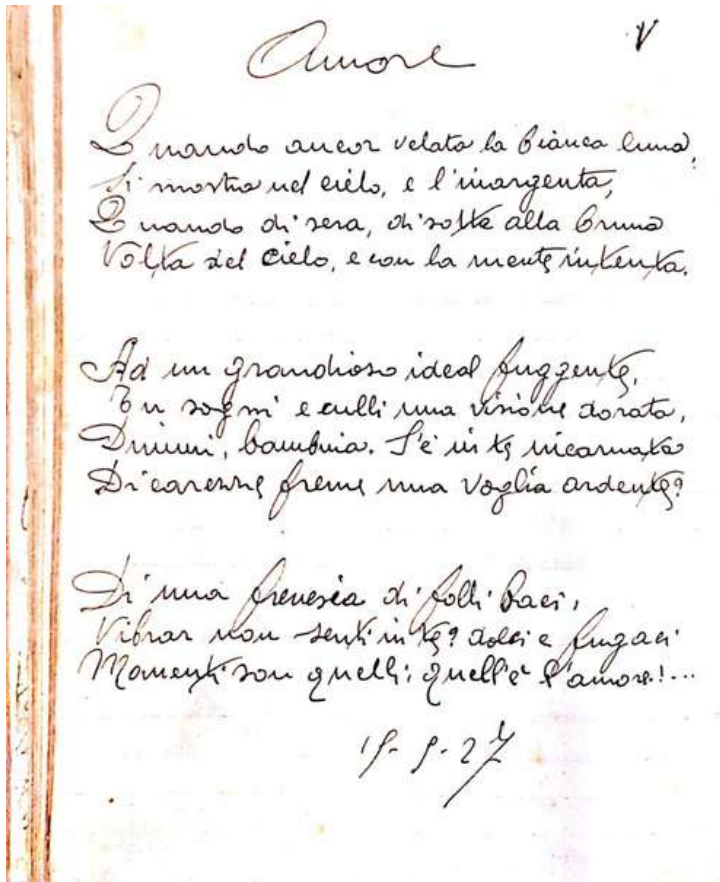 V
Amore
Quando ancor velata la bianca luna,
Si mostra nel cielo, e l'inargenta,
Quando di sera, di sotto alla bruna
Volta del cielo, e con la mente intenta.
Ad un grandioso ideal fuggente,
Tu sogni e culli una visione dorata,
Dimmi, bambina. S'è in te incarnata
Di carezze freme una voglia ardente?
Di una frenesia di folli baci,
Vibrar non senti in te? dolci e fugaci
Momenti son quelli: quell'è l'amore!...